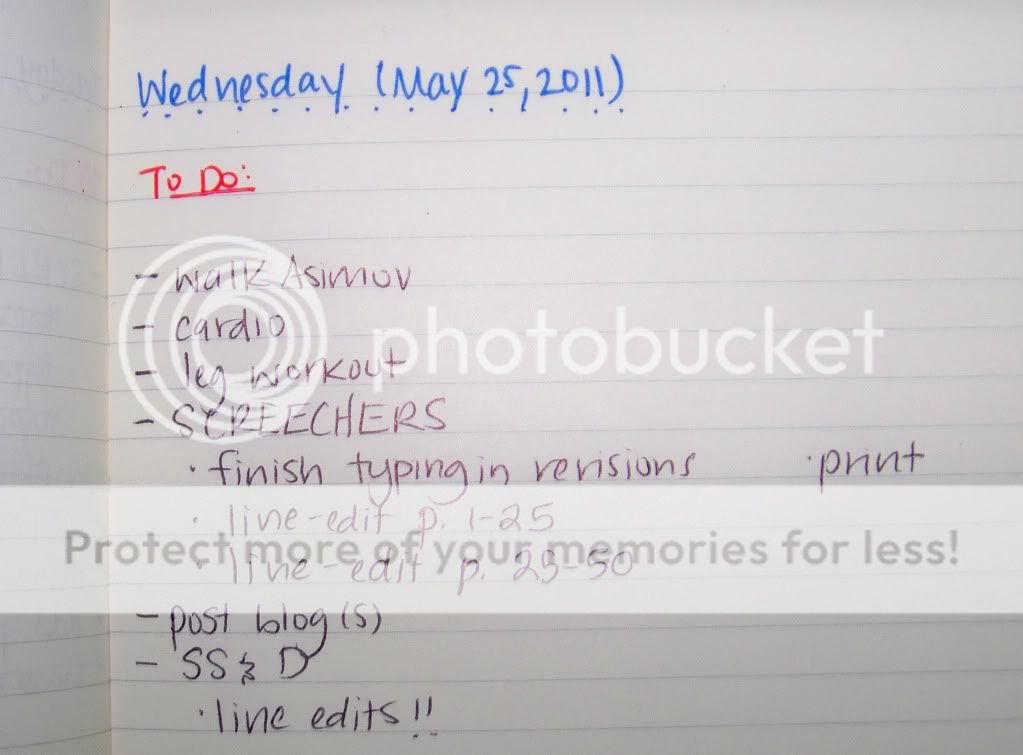 Wednesday (May 25, 2011)
To Do:
- walk Asimov
- cardio
- leg workout
- SCREECHERS
· finish typing in revisions · print
· line-edit p. 1-25
· line-edit p. 25-50
- post blog(s)
- SS & D
· line edits!!
photobucket
Protect more of your memories for less!